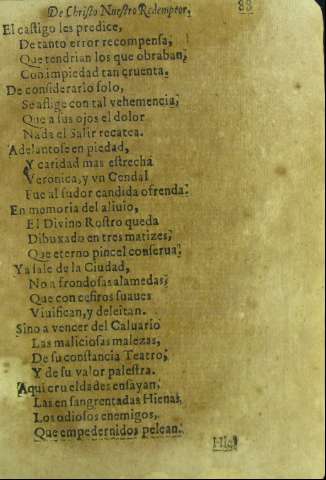 De Christo Nuestro Redemptor.
83
El castigo les predice,
De tanto error recompensa,
Que tendrian los que obraban,
Con impiedad tan cruenta.
De considerarlo solo,
Se aflige con tal vehemencia,
Que a sus ojos el dolor
Nada el salir recatea.
Adelantose en piedad,
Y caridad mas estrecha
Veronica, y vn Cendal
Fue al sudor candida ofrenda.
En memoria del aliuio,
El Divino Rostro queda
Dibuxado en tres matizes,
Que eterno pincel conserua.
Ya sale de la Ciudad,
No a frondosas alamedas,
Que con cefiros suaues
Viuifican, y deleitan.
Sino a vencer del Caluario
Las maliciosas malezas,
De su constancia Teatro,
Y de su valor palestra.
Aqui crueldades ensayan,
Las ensangrentadas Hienas,
Los odiosos enemigos,
Que empedernidos pelean.